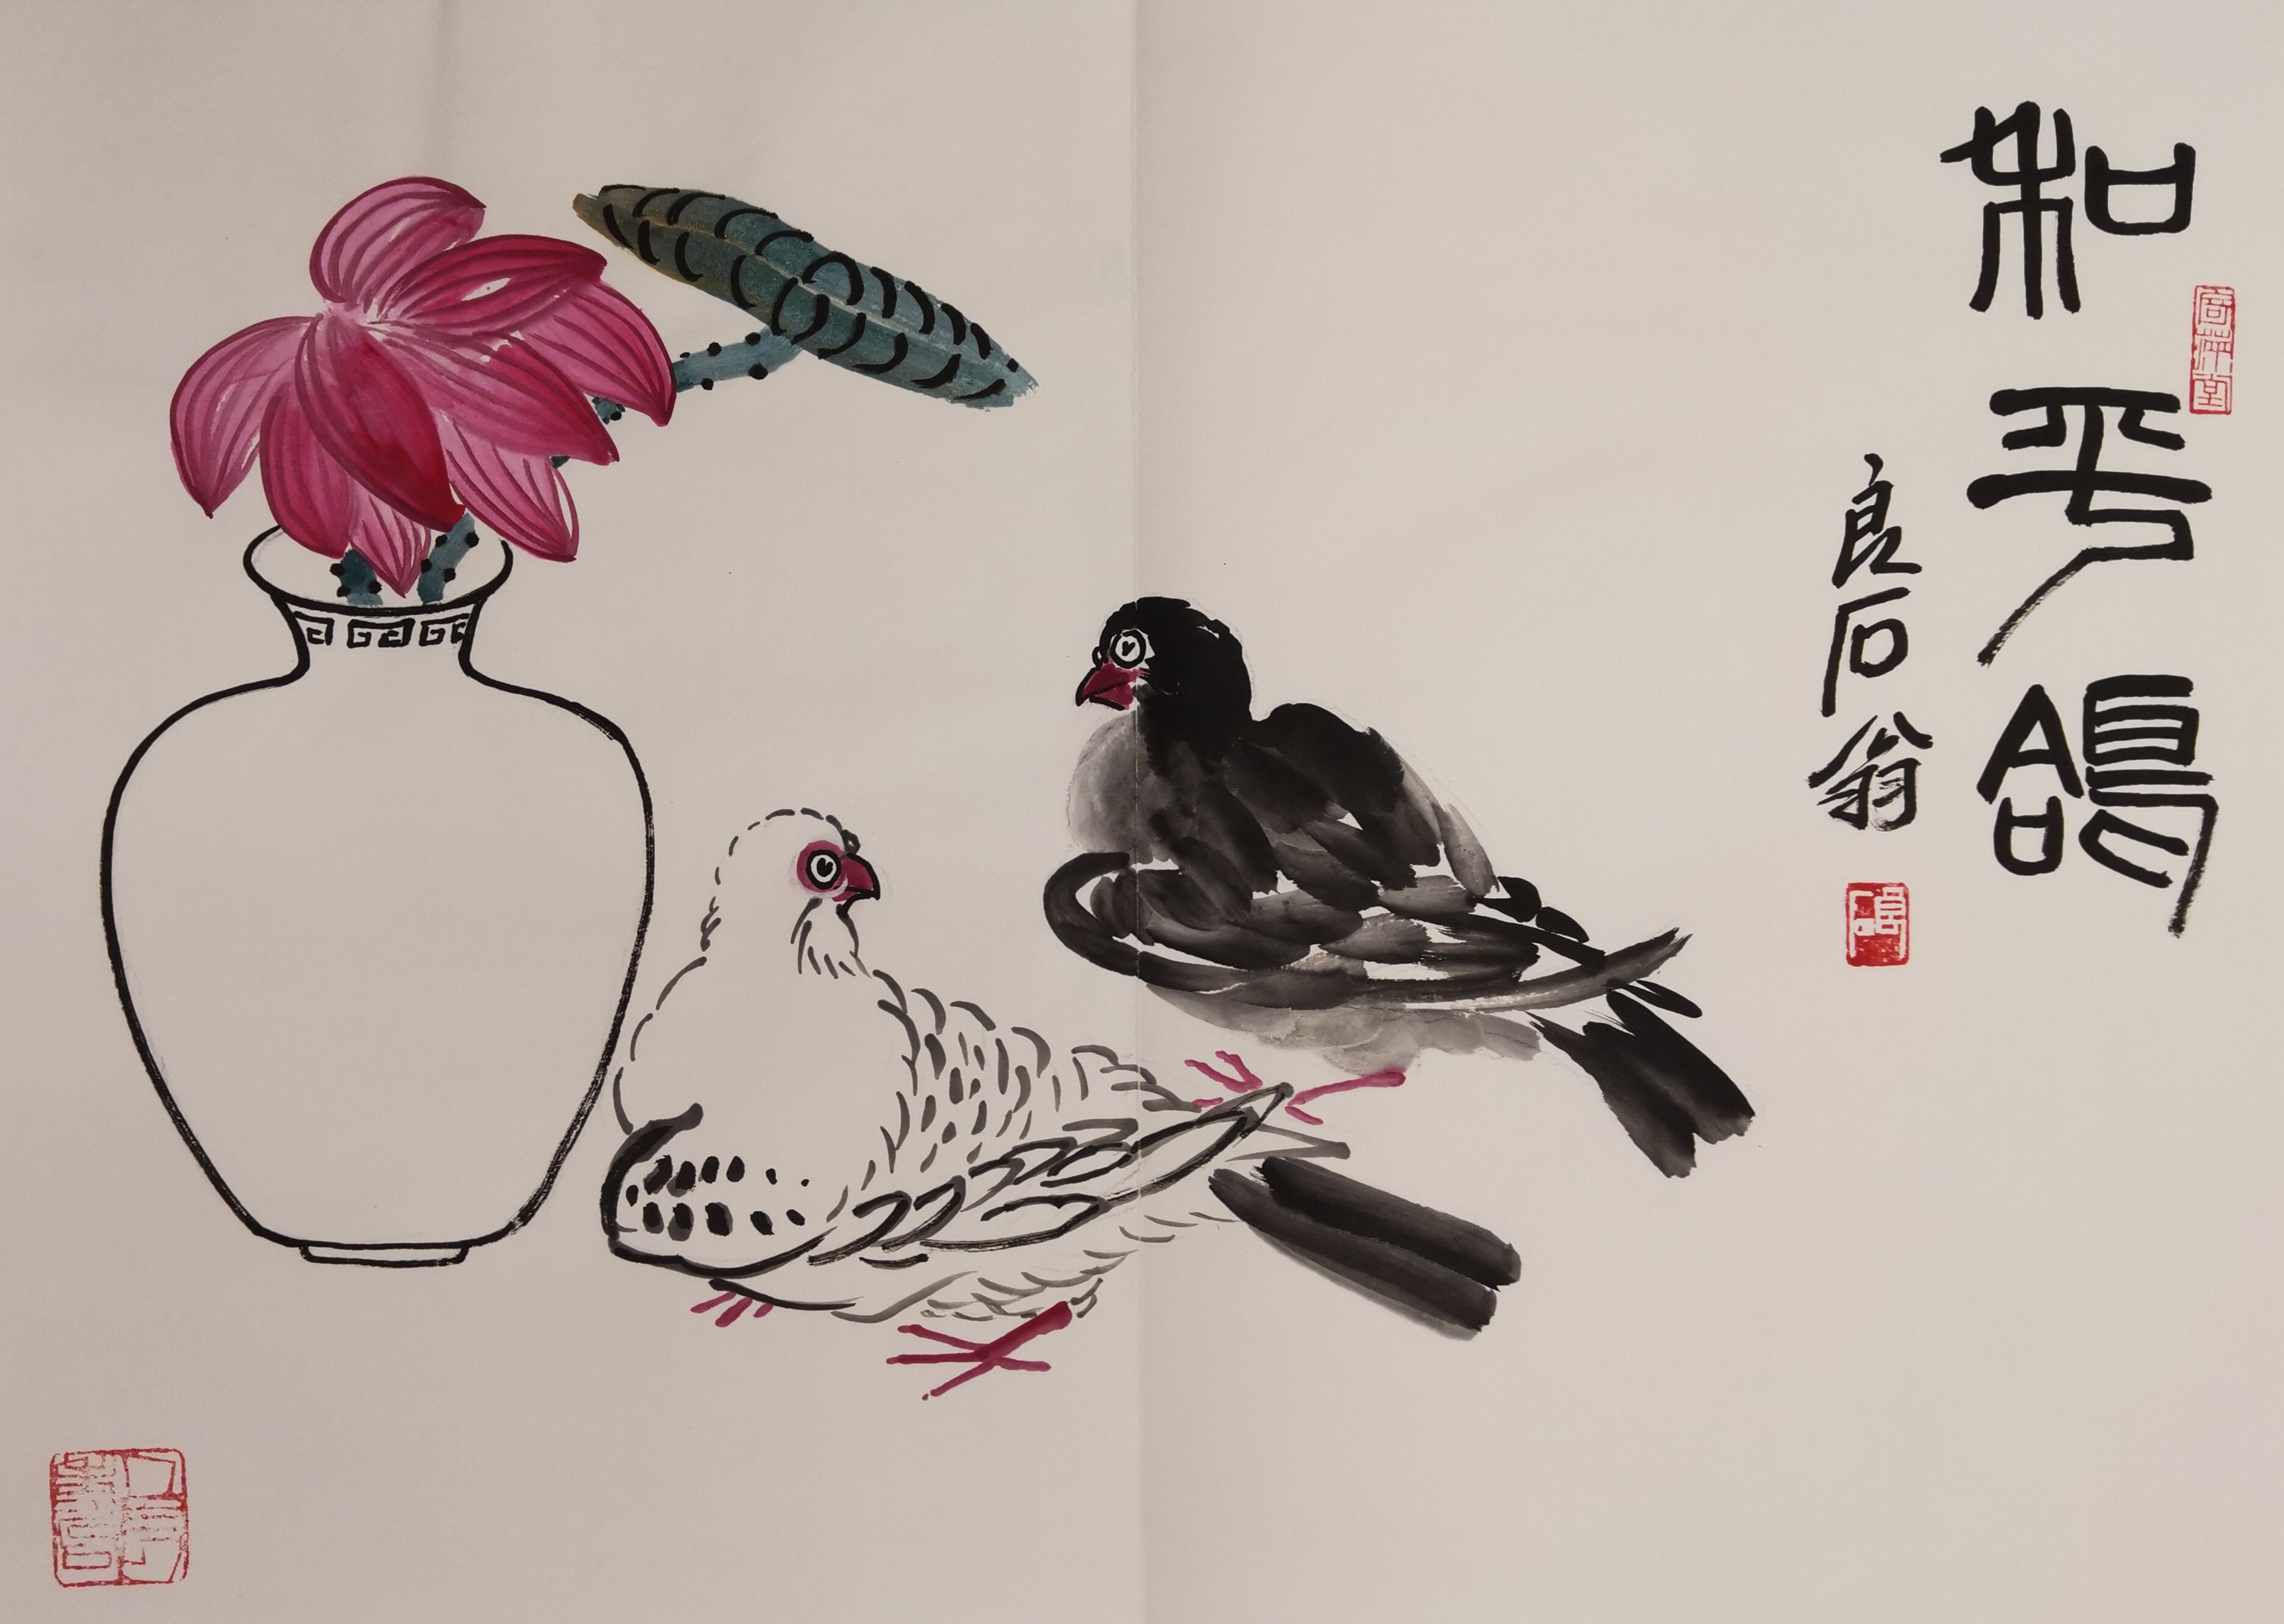 和平鸽
良石翁